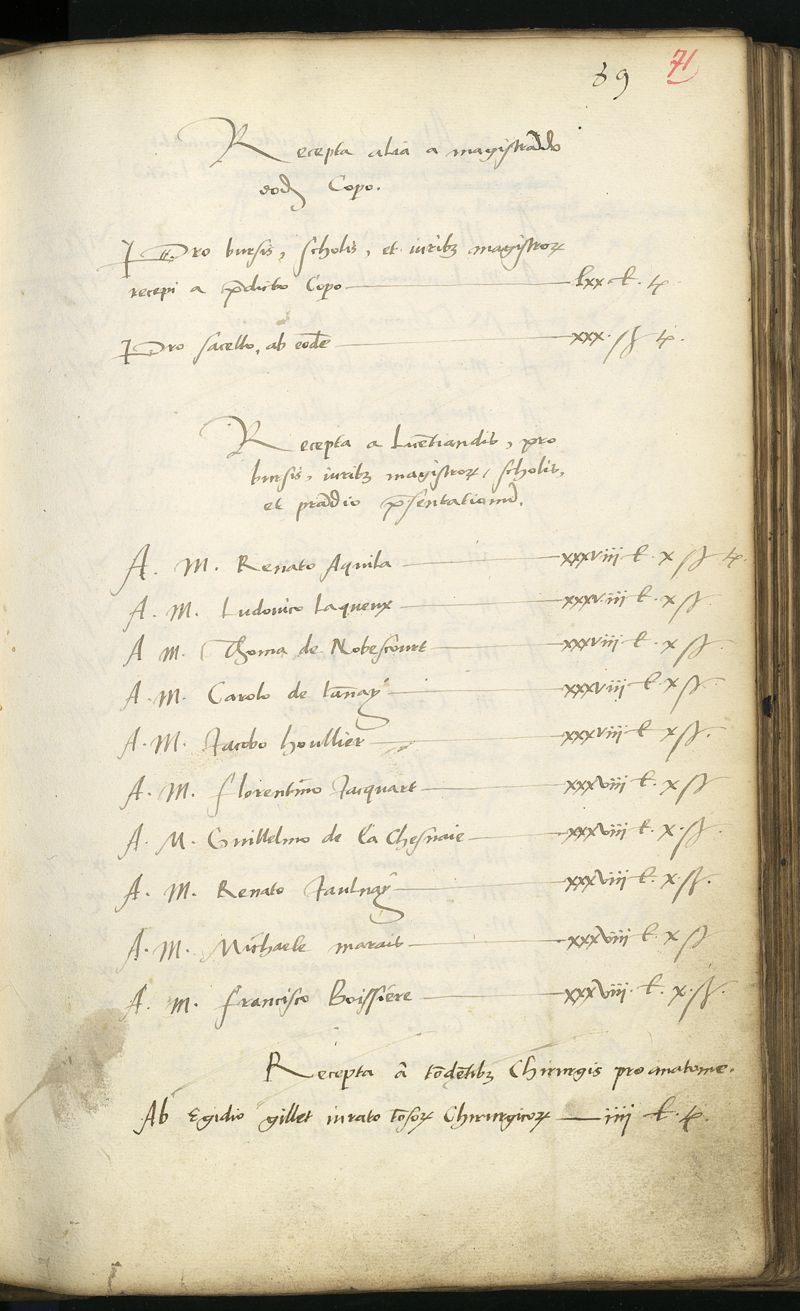 89 71
Recepta alia a magistrādo
eodē Copo.
Pro bursis, scholis, et iuribꝫ magistroꝝ
recepi a p̄dicto Copo lxx ł. tꝭ.
Pro sacello, ab eodē xxx. ß tꝭ.
Recepta a Licētiandis, pro
bursis, iuribꝫ magistroꝝ, scholis,
et prādio p̄sentationū.
A. M. Renato Aquila xxxviii ł. x ß tꝭ.
A. M. Ludovico Laqueux xxxviii ł. x ß.
A M. Thoma de Nobescourt xxxviii ł. x ß.
A. M. Carolo de Lānay xxxviii ł. x ß.
A. M. Jacobo houllier xxxviii ł. x ß.
A. M. Florentino Jacquart xxxviii ł. x ß
A. M. Guillelmo de La Chesnaie xxxviii ł. x. ß.
A. M. Renato Jaulnay xxxviii ł. x ß.
A. M. Michaele marais xxxviii ł. x ß
A. M. Francisco Boissiere xxxviii. ł. x. ß.
Recepta a tōdētibꝫ Chirurgis pro anatome.
Ab Egidio gillet iurato tōsoꝝ Chirurgicoꝝ iiii ł. tꝭ.